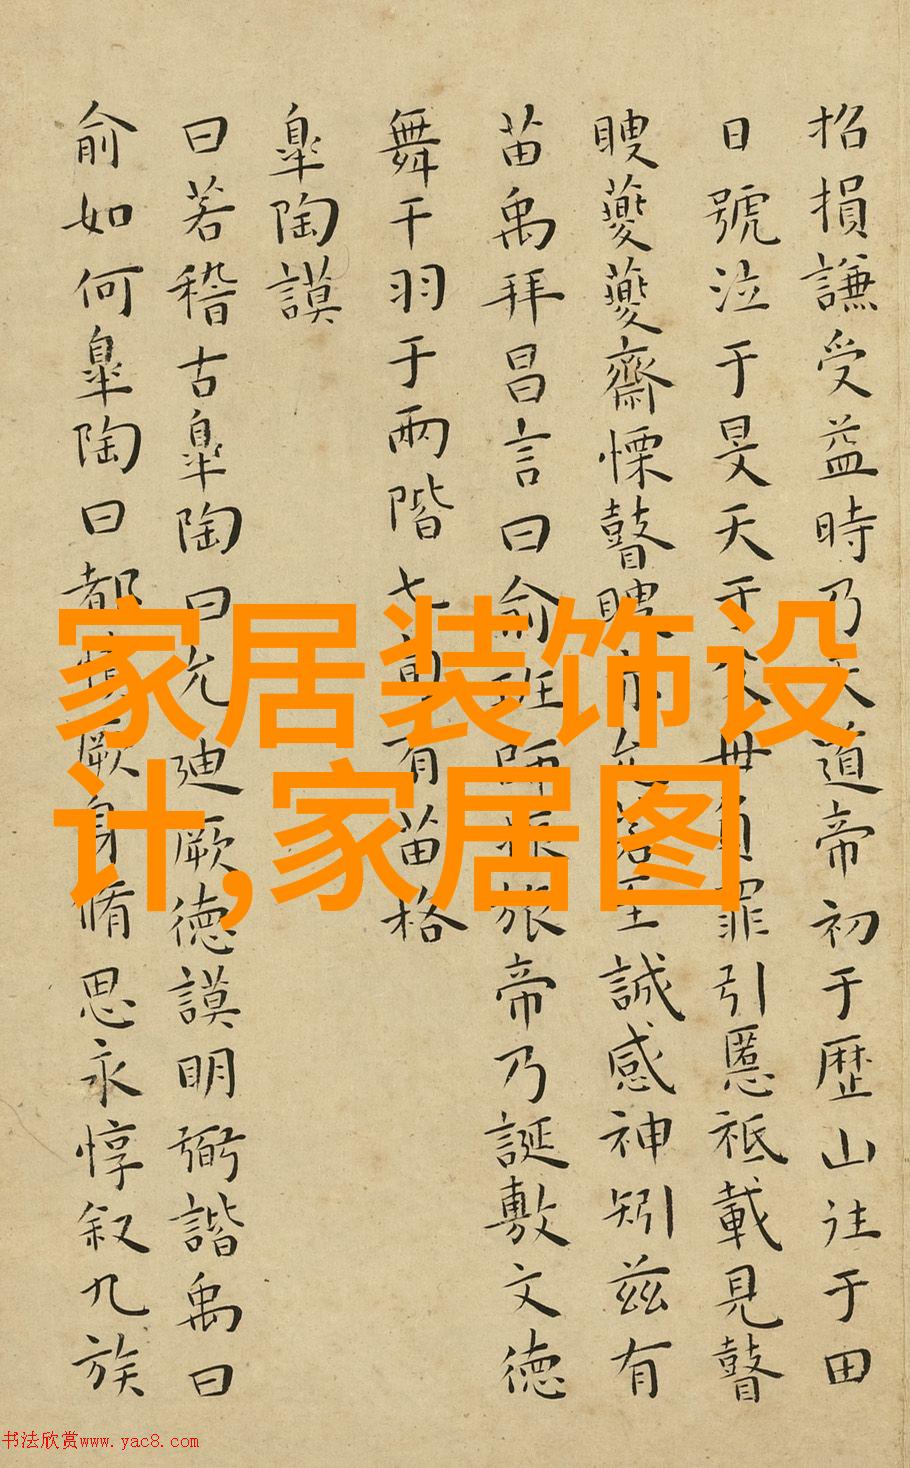 招損謙受益時乃天道帝初于歷山往于田
日號泣于旻天于父母負罪引慝祗載見瞽
瞍夔夔齋慄瞽瞍亦允若至誠感神矧茲有
苗禹拜昌言曰俞班師振旅帝乃誕敷文德
舞干羽于兩階七旬有苗格
皐陶謨
曰若稽古皐陶曰允迪厥德謨明弼諧禹曰
俞如何皐陶曰都慎厥身脩思永惇叙九族
家居装饰设
计,家居图
书法欣赏www.yac8.com